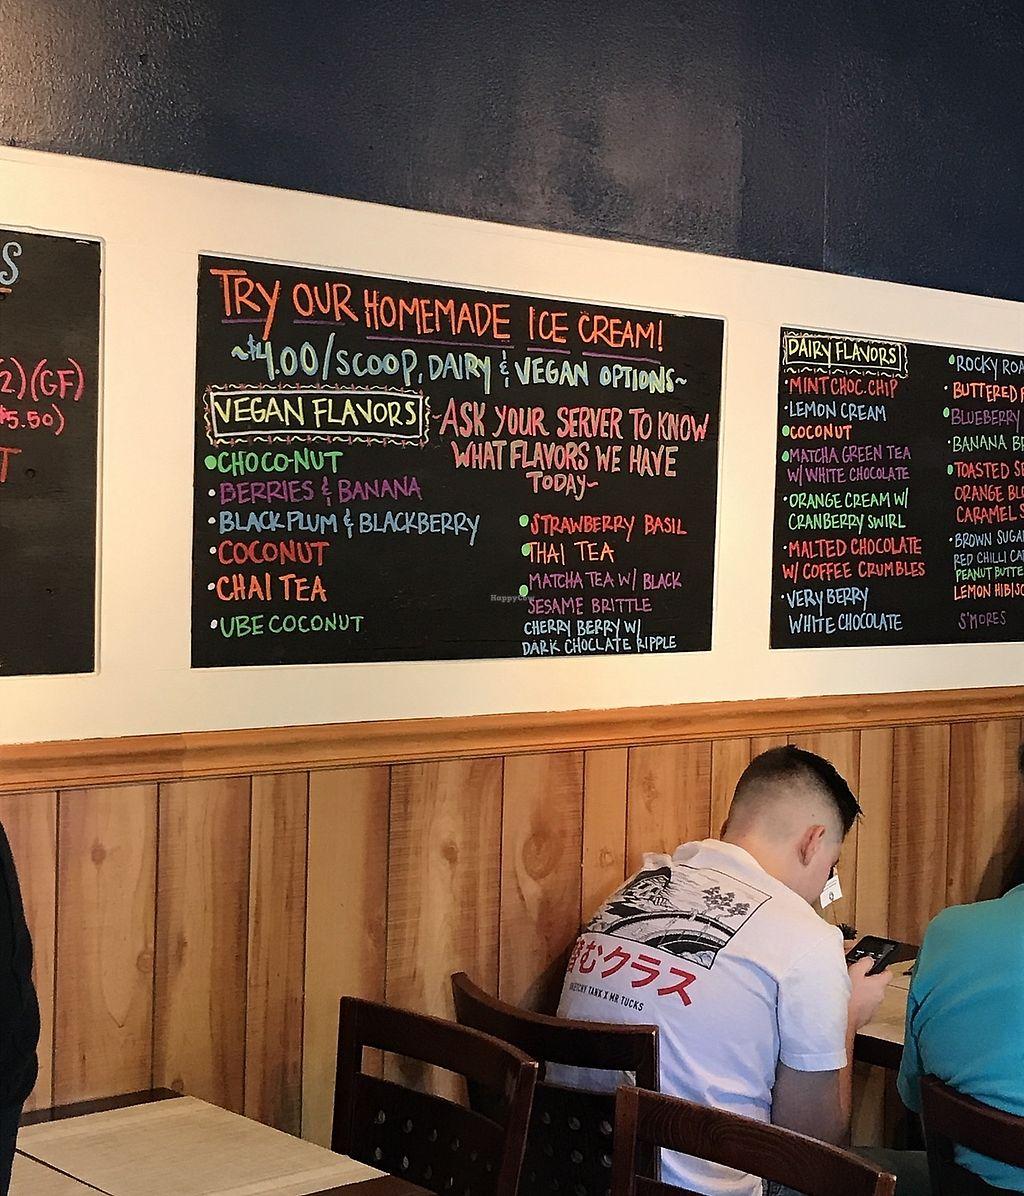 S
2)(GF)
$5.50)
T
TRY OUR HOMEMADE ICE CREAM!
~$4.00/SCOOP, DAIRY & VEGAN OPTIONS~
VEGAN FLAVORS
~ASK YOUR SERVER TO KNOW
WHAT FLAVORS WE HAVE
TODAY~
•CHOCO-NUT
•BERRIES & BANANA
•BLACK PLUM & BLACKBERRY
•COCONUT
•CHAI TEA
•UBE COCONUT
•STRAWBERRY BASIL
•THAI TEA
•MATCHA TEA W/ BLACK
SESAME BRITTLE
CHERRY BERRY W/
DARK CHOCLATE RIPPLE
HappyCow
DAIRY FLAVORS
•MINT CHOC. CHIP
•LEMON CREAM
•COCONUT
•MATCHA GREEN TEA
W/ WHITE CHOCOLATE
•ORANGE CREAM W/
CRANBERRY SWIRL
•MALTED CHOCOLATE
W/ COFFEE CRUMBLES
•VERY BERRY
WHITE CHOCOLATE
•ROCKY ROA
•BUTTERED
•BLUEBERRY
•BANANA BR
•TOASTED SE
ORANGE BL
CARAMEL S
•BROWN SUGA
RED CHILLI CA
PEANUT BUTTE
LEMON HIBISC
S'MORES
むクラス
SKETCHY TANK X MR TUCKS